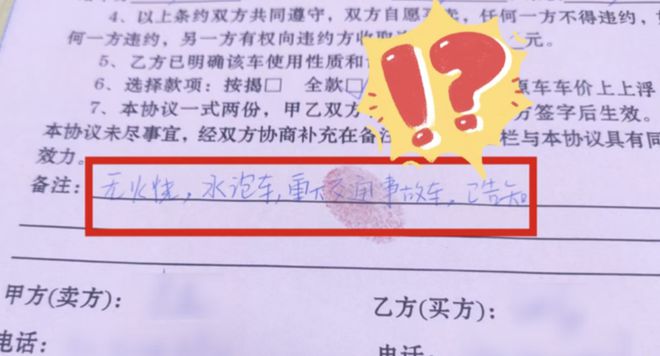 4、以上条约双方共同遵守，双方自愿买卖，任何一方不得违约，
何一方违约，另一方有权向违约方收取 元。
5、乙方已明确该车使用性质和
6、选择款项：按揭□ 全款□ 原车车价上上浮
7、本协议一式两份，甲乙双方 方签字后生效。
本协议未尽事宜，经双方协商补充在备注 栏与本协议具有同
效力。
备注：无火烧，水泡车，重大交通事故车，已告知
!?
甲方(卖方)：
乙方(买方)：
电话：
电话